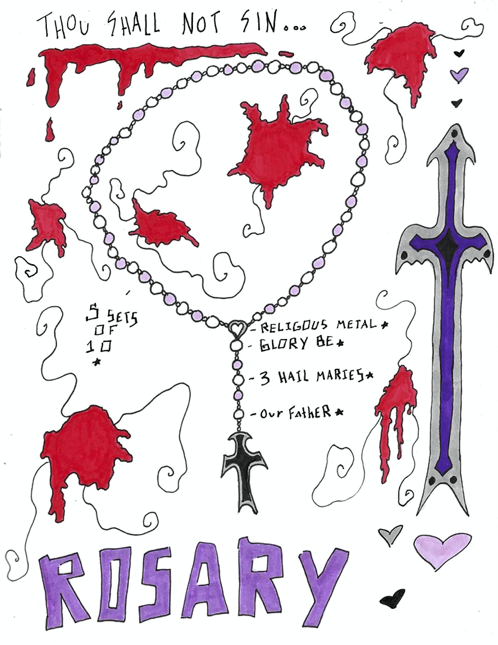 THOU SHALL NOT SIN...
5 SETS
OF
10
*
- RELIGOUS METAL *
- GLORY BE *
3 HAIL MARIES *
- OUR FATHER *
ROSARY